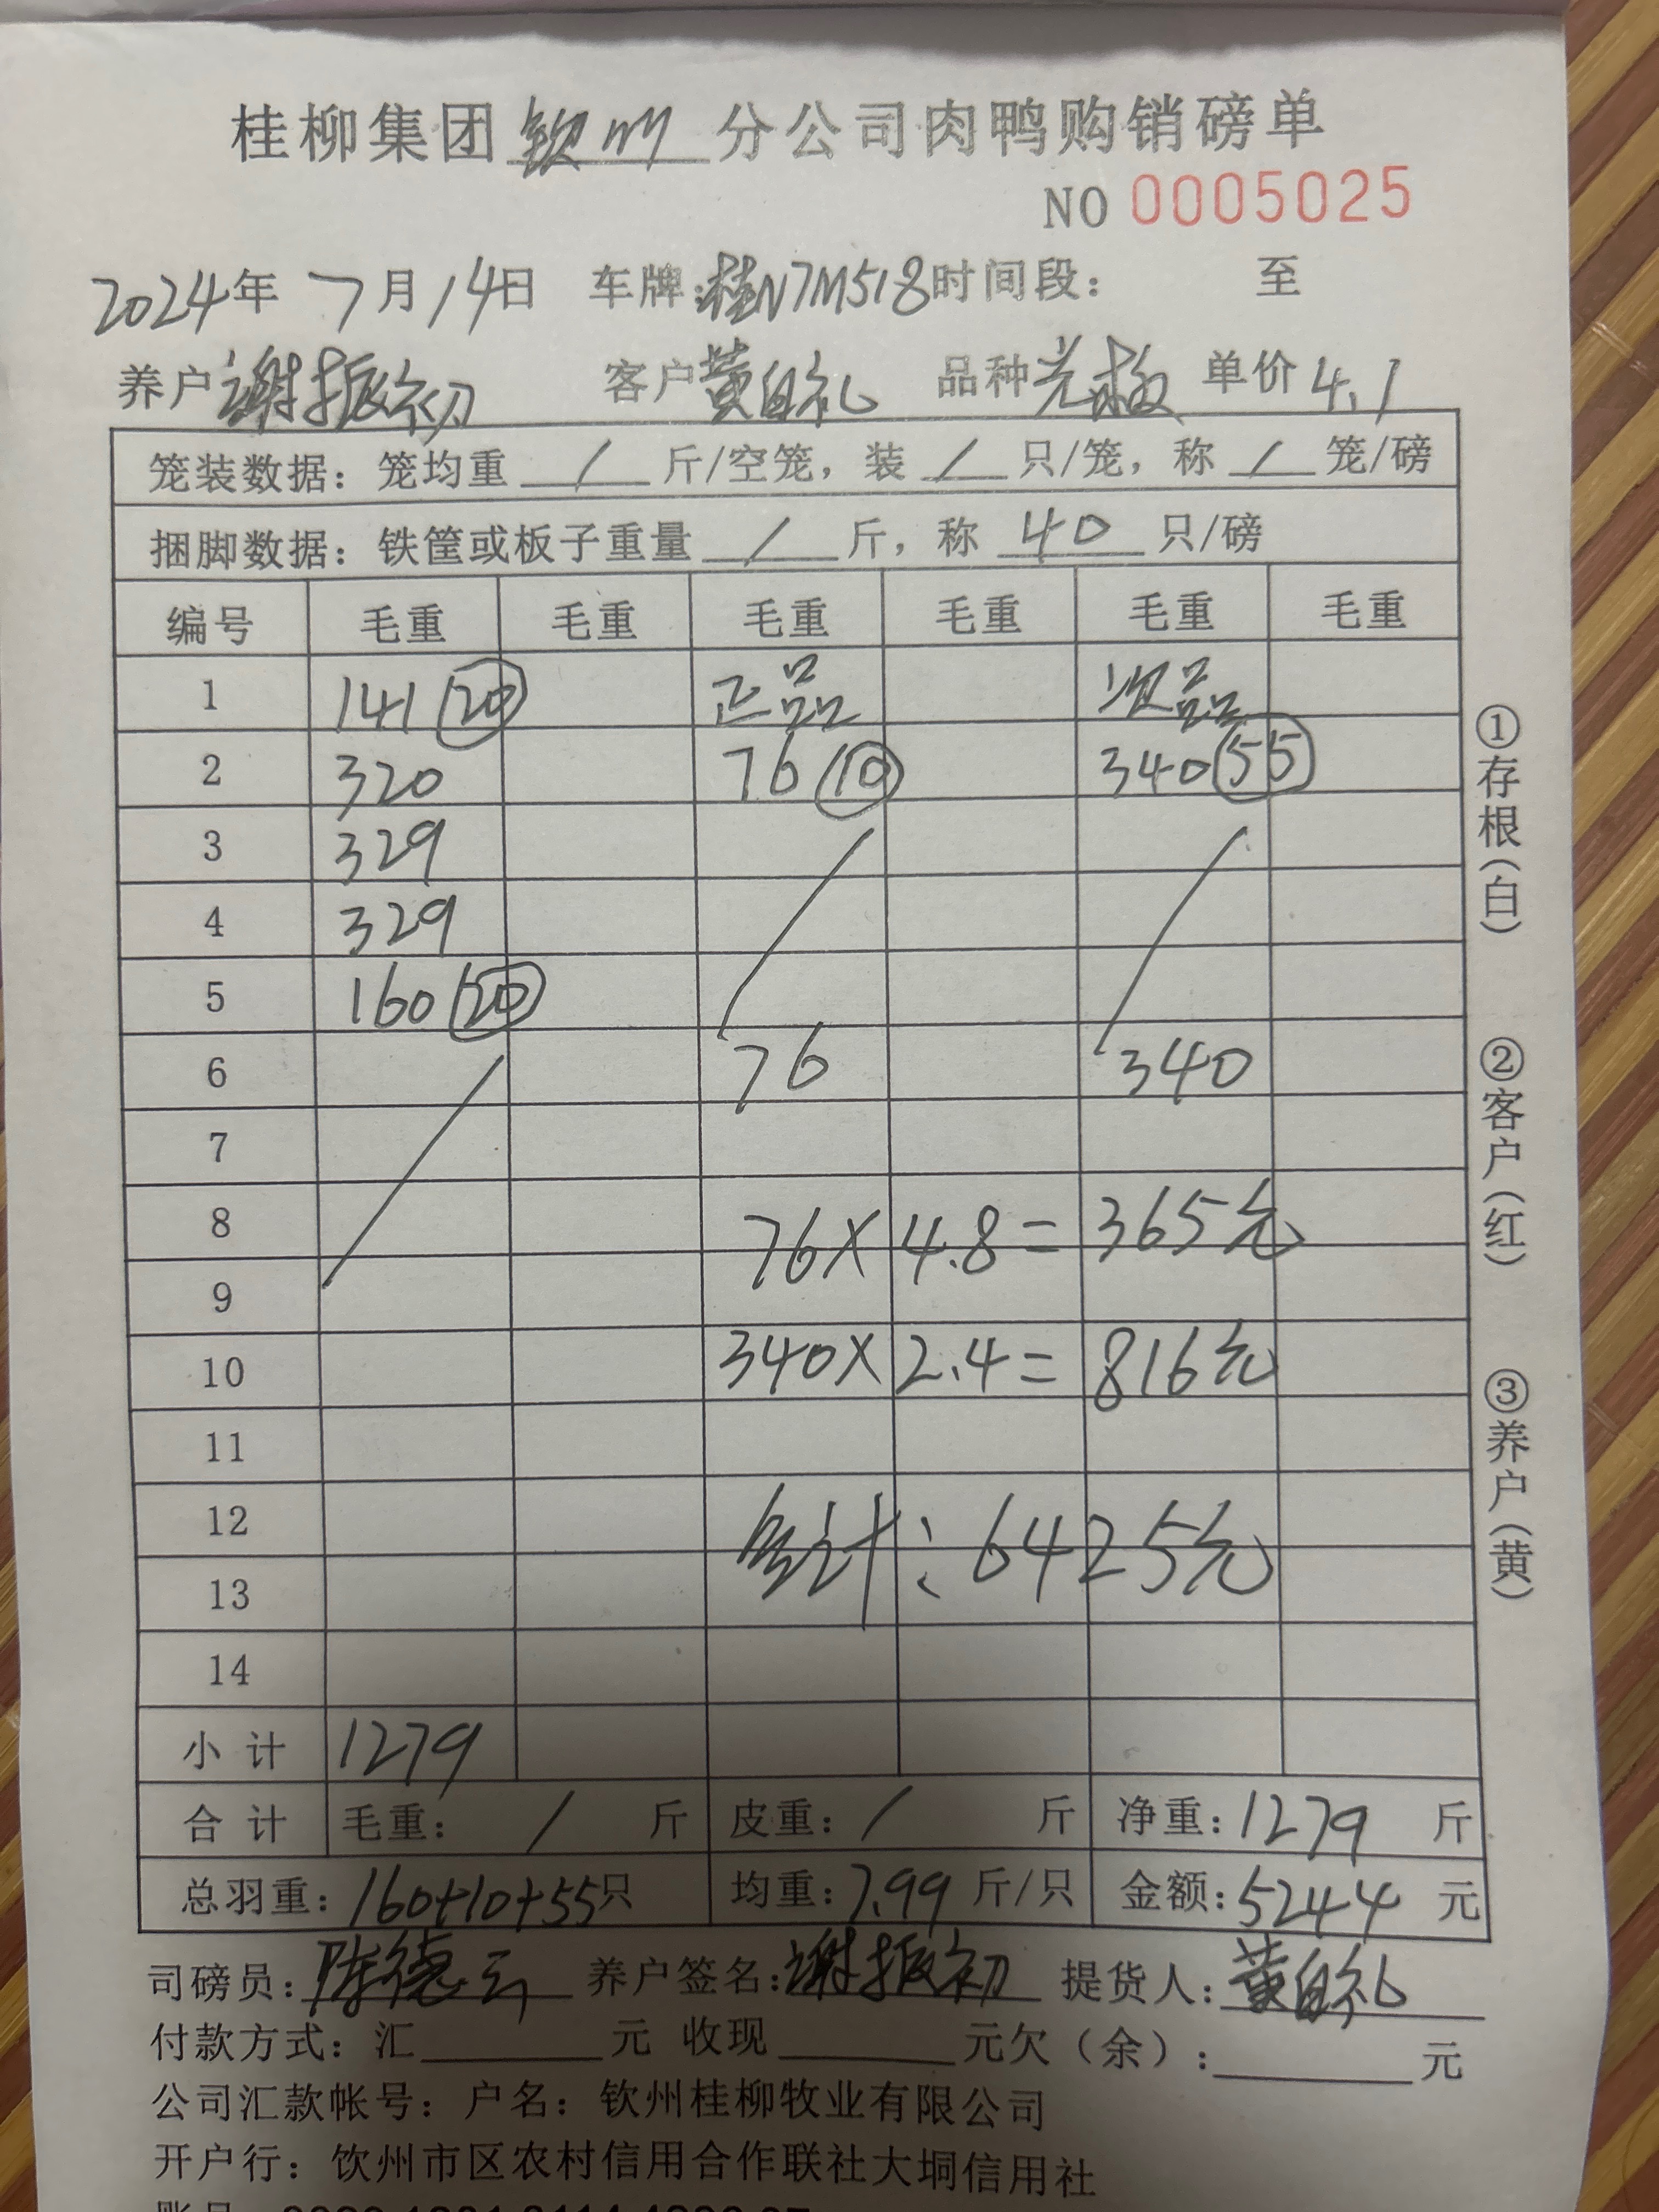 桂柳集团钦州分公司肉鸭购销磅单
NO 0005025
2024年 7月14日 车牌:桂N7M518时间段: 至
养户谢振初 客户黄自礼 品种 单价4.1
笼装数据: 笼均重 / 斤/空笼, 装 / 只/笼, 称 / 笼/磅
捆脚数据: 铁筐或板子重量 / 斤, 称 40 只/磅
编号 毛重 毛重 毛重 毛重 毛重 毛重
1 141 (20) 正品 次品
2 320 76 (10) 340 (55)
3 329
4 329
5 160 (20)
6 76 340
7
8 76×4.8=365元
9
10 340×2.4=816元
11
12 合计:6425元
13
14
小计 1279
合计 毛重: / 斤 皮重: / 斤 净重:1279 斤
总羽重:160+10+55只 均重:7.99 斤/只 金额:5244 元
司磅员:陈德云 养户签名:谢振初 提货人:黄自礼
付款方式: 汇 元 收现 元欠(余): 元
公司汇款帐号: 户名: 钦州桂柳牧业有限公司
开户行: 钦州市区农村信用合作联社大垌信用社
①存根(白)
②客户(红)
③养户(黄)